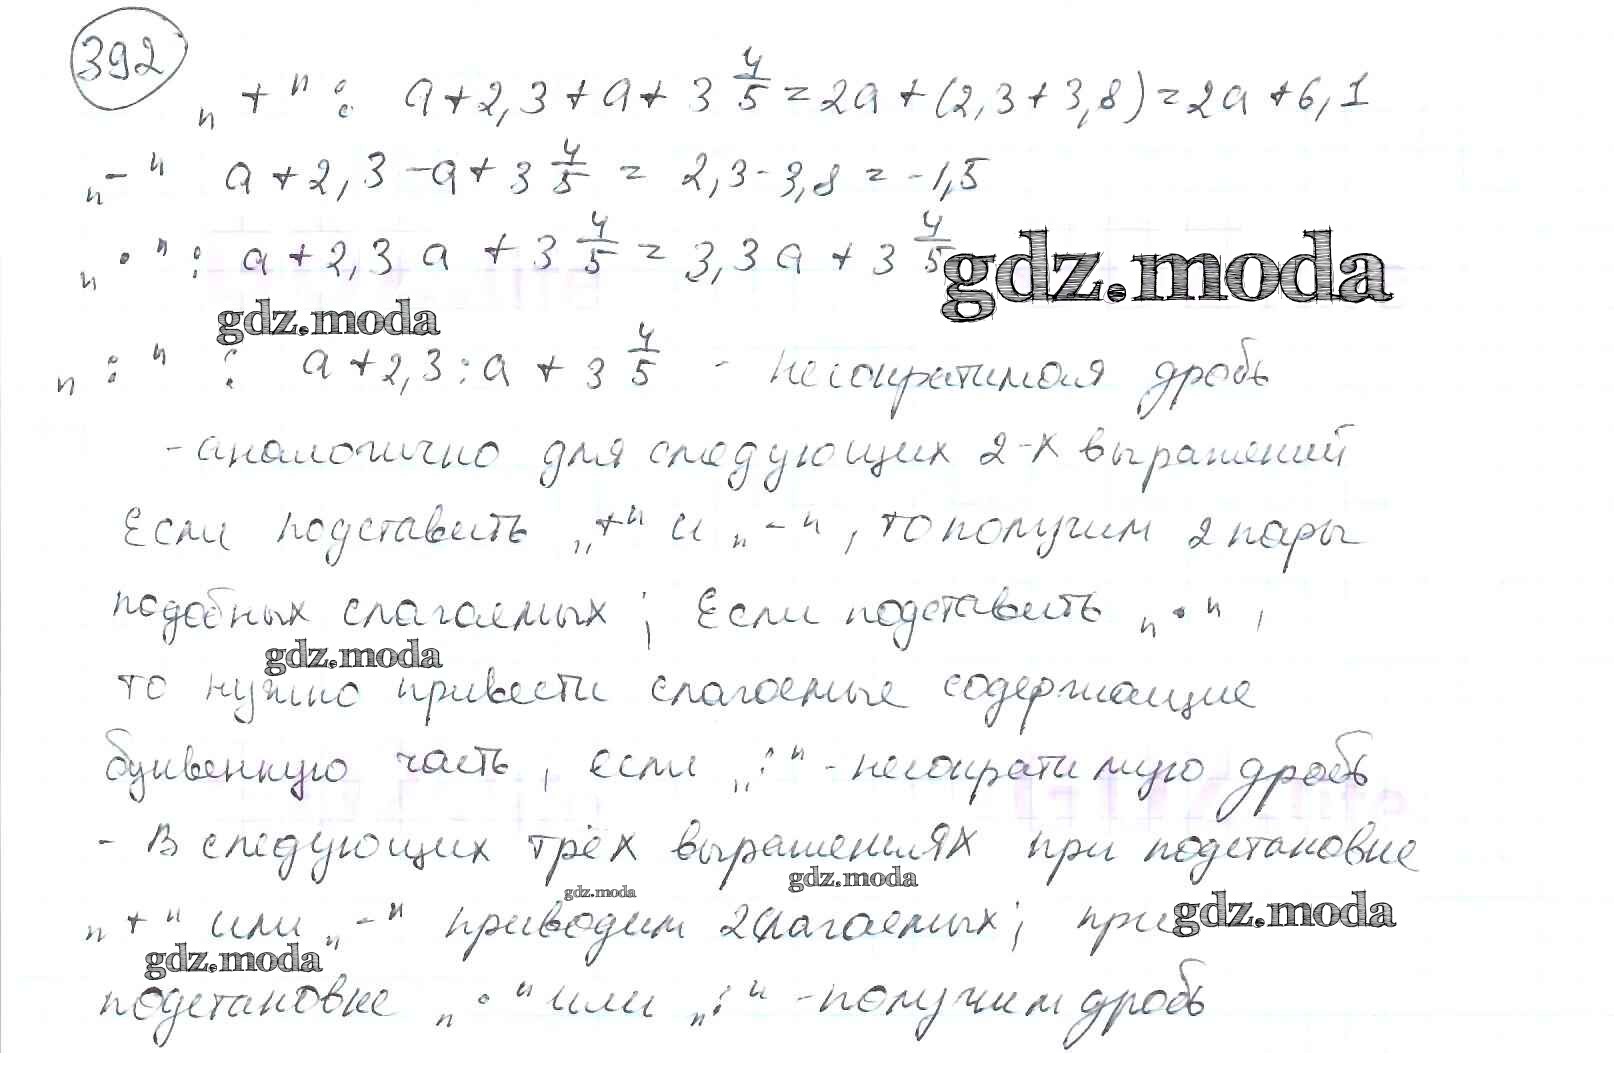 392
„+“ : a + 2,3 + a + 3 4/5 = 2a + (2,3 + 3,8) = 2a + 6,1
„-“ a + 2,3 - a + 3 4/5 = 2,3 - 3,8 = -1,5
„·“ : a + 2,3 a + 3 4/5 = 3,3 a + 3 4/5
gdz.moda
gdz.moda
„:“ : a + 2,3 : a + 3 4/5 - несократимая дробь
- аналогично для следующих 2-х выражений
Если подставить „+“ и „-“, то получим 2 пары
подобных слагаемых; Если подставить „·“,
gdz.moda
то нужно привести слагаемые содержащие
буквенную часть, если „:“ - несократимую дробь
- В следующих трёх выражениях при подстановке
gdz.moda gdz.moda
„+“ или „-“ приводим 2 слагаемых; при gdz.moda
gdz.moda
подстановке „·“ или „:“ - получим дробь